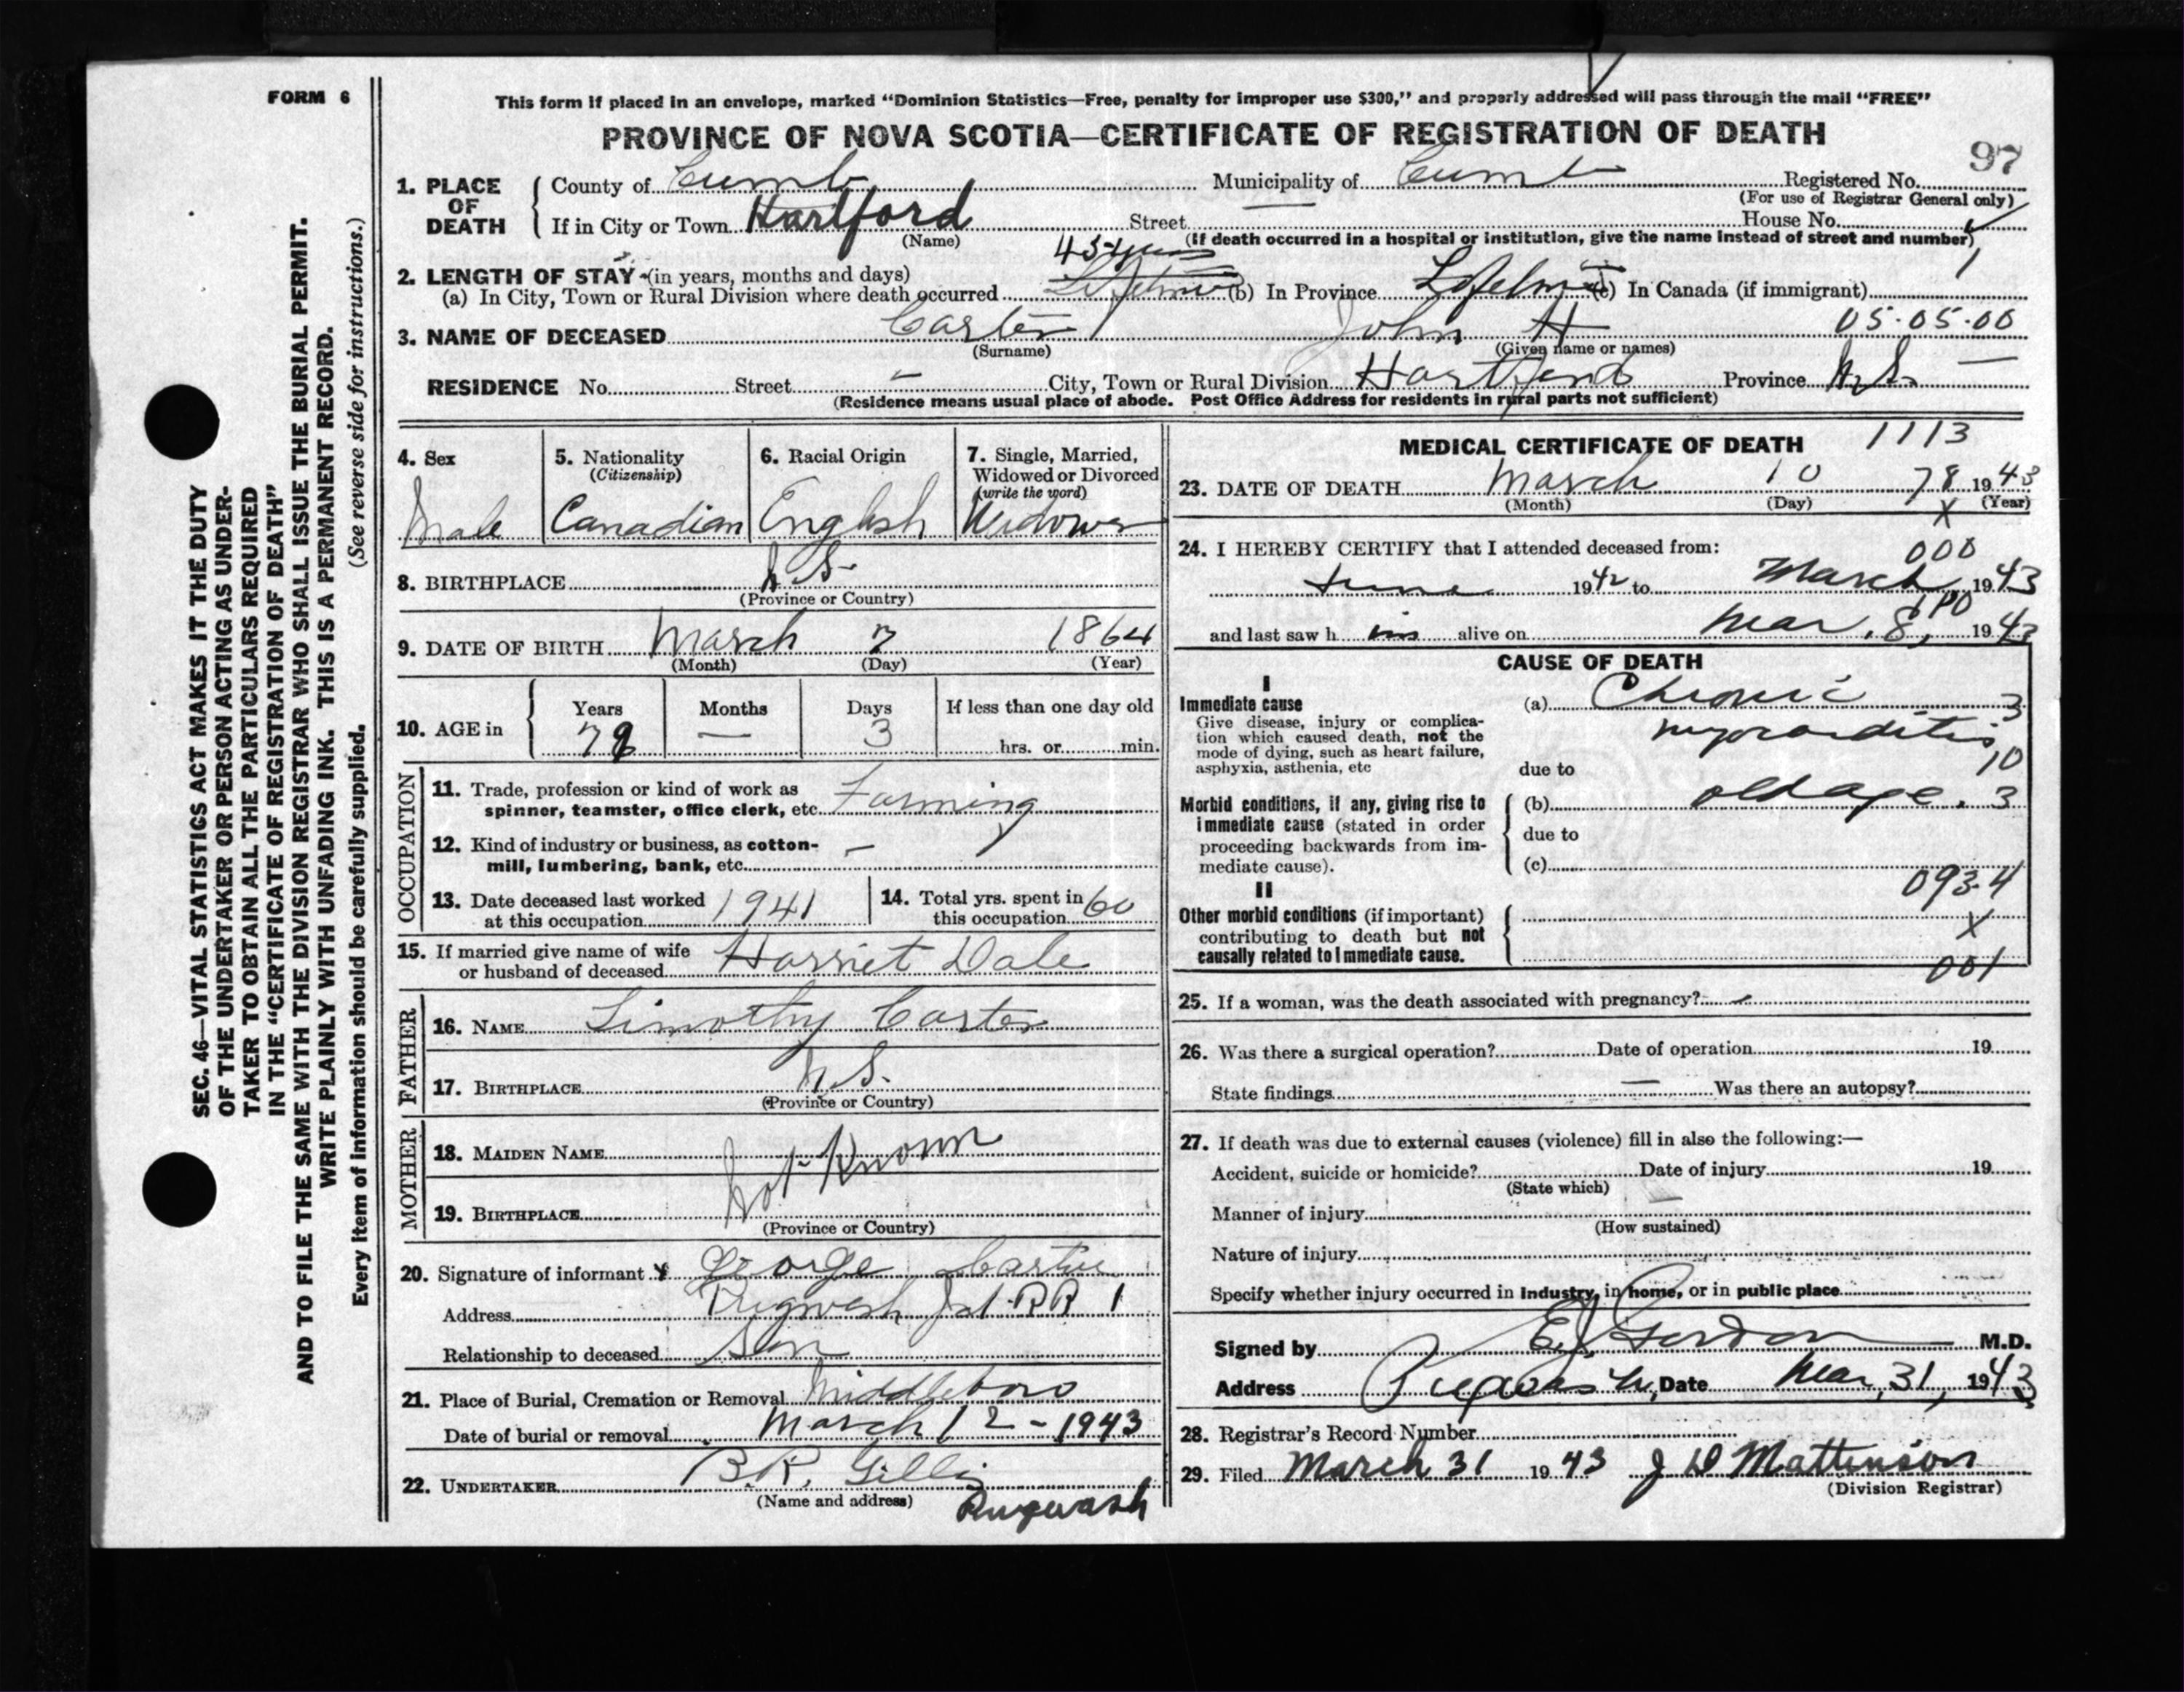 FORM 6
This form if placed in an envelope, marked “Dominion Statistics—Free, penalty for improper use $300,” and properly addressed will pass through the mail “FREE”
PROVINCE OF NOVA SCOTIA—CERTIFICATE OF REGISTRATION OF DEATH
97
1. PLACE OF DEATH County of Cumb Municipality of Cumb Registered No.
(For use of Registrar General only)
If in City or Town Hartford Street House No.
(Name) (If death occurred in a hospital or institution, give the name instead of street and number)
43 years
2. LENGTH OF STAY (in years, months and days)
(a) In City, Town or Rural Division where death occurred Lifetime (b) In Province Lifetime (c) In Canada (if immigrant)
3. NAME OF DECEASED Carter John H 05·05·00
(Surname) (Given name or names)
RESIDENCE No. Street – City, Town or Rural Division Hartford Province N.S. —
(Residence means usual place of abode. Post Office Address for residents in rural parts not sufficient)
4. Sex
Male
5. Nationality
(Citizenship)
Canadian
6. Racial Origin
English
7. Single, Married,
Widowed or Divorced
(write the word)
Widower
8. BIRTHPLACE N.S.
(Province or Country)
9. DATE OF BIRTH March 7 1864
(Month) (Day) (Year)
10. AGE in Years Months Days If less than one day old
79 — 3 hrs. or min.
OCCUPATION
11. Trade, profession or kind of work as
spinner, teamster, office clerk, etc. Farming
12. Kind of industry or business, as cotton-
mill, lumbering, bank, etc. –
13. Date deceased last worked
at this occupation 1941
14. Total yrs. spent in
this occupation 60
15. If married give name of wife
or husband of deceased Harriet Dale
FATHER
16. NAME Timothy Carter
17. BIRTHPLACE N.S.
(Province or Country)
MOTHER
18. MAIDEN NAME Not Known
19. BIRTHPLACE
(Province or Country)
20. Signature of informant x George Carter
Address Pugwash Jct. RR 1
Relationship to deceased Son
21. Place of Burial, Cremation or Removal Middleboro
Date of burial or removal March 12 - 1943
22. UNDERTAKER B.R. Gillis
(Name and address) Pugwash
MEDICAL CERTIFICATE OF DEATH 1113
23. DATE OF DEATH March 10 78 1943
(Month) (Day) X (Year)
24. I HEREBY CERTIFY that I attended deceased from:
000
June 1942 to March, 1943
and last saw him alive on Mar. 8, 1943
CAUSE OF DEATH
I
Immediate cause
Give disease, injury or complica-
tion which caused death, not the
mode of dying, such as heart failure,
asphyxia, asthenia, etc
(a) Chronic 3
myocarditis
10
due to
Morbid conditions, if any, giving rise to
immediate cause (stated in order
proceeding backwards from im-
mediate cause).
(b) old age. 3
due to
(c)
093·4
II
Other morbid conditions (if important)
contributing to death but not
causally related to Immediate cause.
X
001
25. If a woman, was the death associated with pregnancy? –
26. Was there a surgical operation? Date of operation 19
State findings — Was there an autopsy?
27. If death was due to external causes (violence) fill in also the following:—
Accident, suicide or homicide? Date of injury 19
(State which)
Manner of injury
(How sustained)
Nature of injury
Specify whether injury occurred in Industry, in home, or in public place
Signed by E.J. Gordon M.D.
Address Pugwash, Date Mar, 31, 1943
28. Registrar's Record Number
29. Filed March 31 1943 J D Mattinson
(Division Registrar)
SEC. 46—VITAL STATISTICS ACT MAKES IT THE DUTY
OF THE UNDERTAKER OR PERSON ACTING AS UNDER-
TAKER TO OBTAIN ALL THE PARTICULARS REQUIRED
IN THE “CERTIFICATE OF REGISTRATION OF DEATH”
AND TO FILE THE SAME WITH THE DIVISION REGISTRAR WHO SHALL ISSUE THE BURIAL PERMIT.
WRITE PLAINLY WITH UNFADING INK. THIS IS A PERMANENT RECORD.
Every item of information should be carefully supplied. (See reverse side for instructions.)